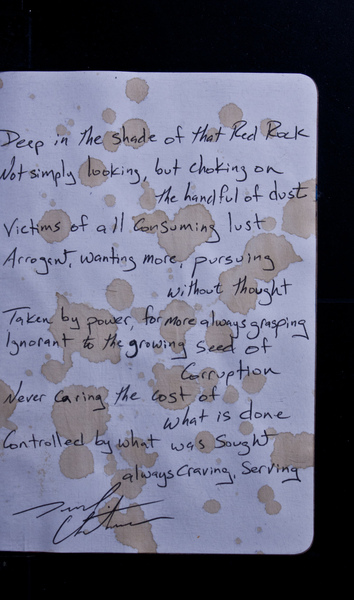 Deep in the shade of that Red Rock
Not simply looking, but choking on
the handful of dust
Victims of all consuming lust
Arrogent, wanting more, pursuing
without thought
Taken by power, for more always grasping
Ignorant to the growing seed of
Corruption
Never caring the cost of
what is done
Controlled by what was sought
always craving, serving